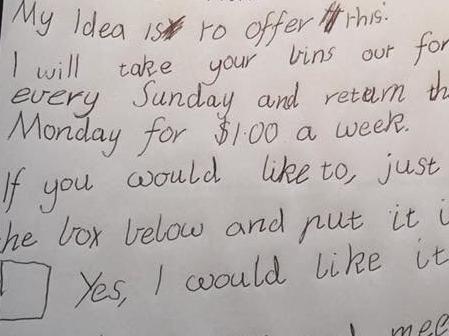 My Idea is to offer this:
I will take your bins out for
every Sunday and return th
Monday for $1.00 a week.
If you would like to, just
he box below and put it i
Yes, I would like it
mee